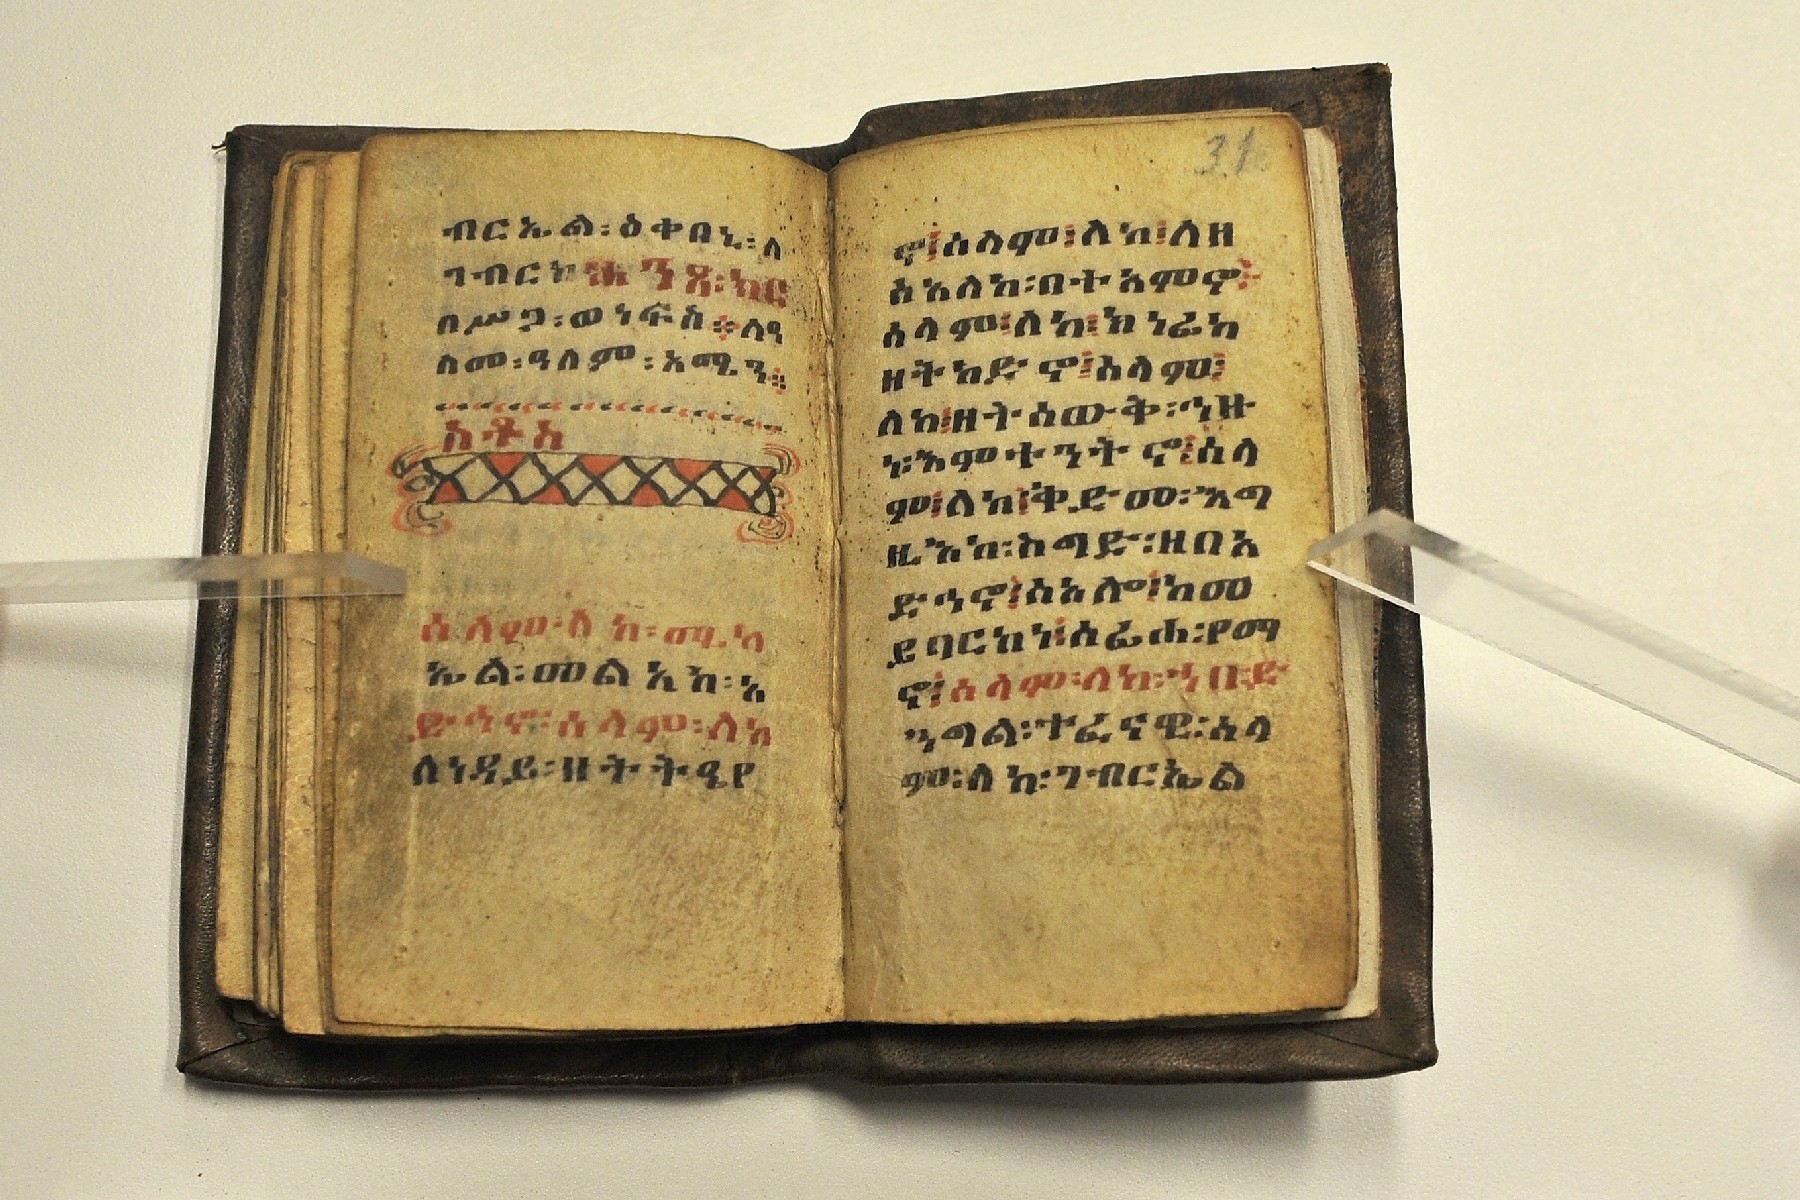 ብርኤል፡ዕቀበኒ፡ለ
ገብርከ
በሥጋ፡ወነፍስ፡፡ለዓ
ለመ፡ዓለም፡አሜን፡፡
ሰላም፡ለከ፡ሚካ
ኤል፡መልአከ፡አ
ድኅኖ፡ሰላም፡ለከ
ለነዳይ፡ዘትትዔየ
31
ኖ፡ሰላም፡ለከ፡ለዘ
ሰአለከ፡በተአምኖ፡
ሰላም፡ለከ፡ክነፊከ
ዘትከድኖ፡ሰላም፡
ለከ፡ዘትሰውቅ፡ኅዙ
ነ፡እምተንትኖ፡ሰላ
ም፡ለከ፡ቅድሙ፡እግ
ዚእከ፡ስግድ፡ዘበአ
ድኅኖ፡ሰአሎ፡ከመ
ይባርከነ፡ሰፊሖ፡የማ
ኖ፡ሰላም፡ለከ፡ኀበ፡ድ
ንግል፡ተፈናዊ፡ሰላ
ም፡ለከ፡ገብርኤል